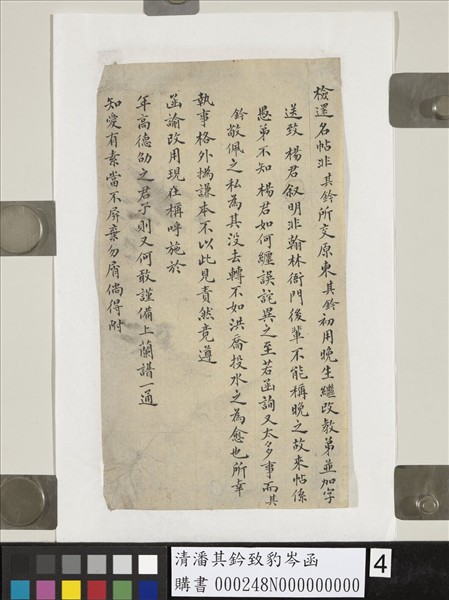 檢還名帖非其鈐所交原柬其鈐初用晚生繼改教弟並加字
送致楊君敘明非翰林衙門後輩不能稱晚之故來帖係
愚弟不知楊君如何纏誤詫異之至若函詢又太多事而其
鈐敬佩之私為其沒去轉不如洪喬投水之為愈也所幸
執事格外撝謙本不以此見責然竟遵
函諭改用現在稱呼施於
年高德劭之君子則又何敢謹備上蘭譜一通
知愛有素當不屏棄勿屑倘得附
清潘其鈐致豹岑函
購書 000248N000000000
4